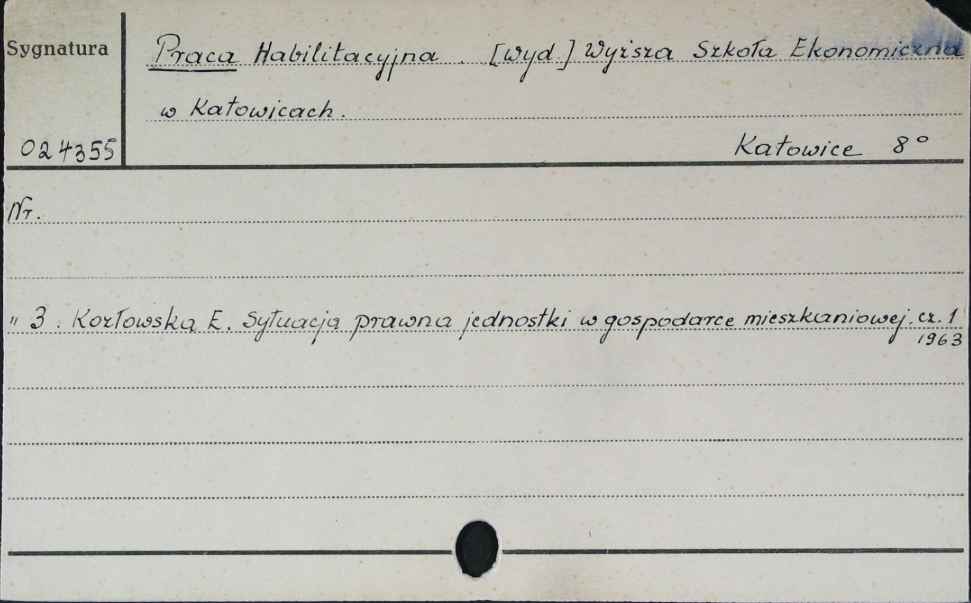 Sygnatura
Praca Habilitacyjna. [wyd.] Wyższa Szkoła Ekonomiczna
w Katowicach.
024355
Katowice 8°
Nr.
" 3. Kozłowska E. Sytuacja prawna jednostki w gospodarce mieszkaniowej. cz. 1
1963